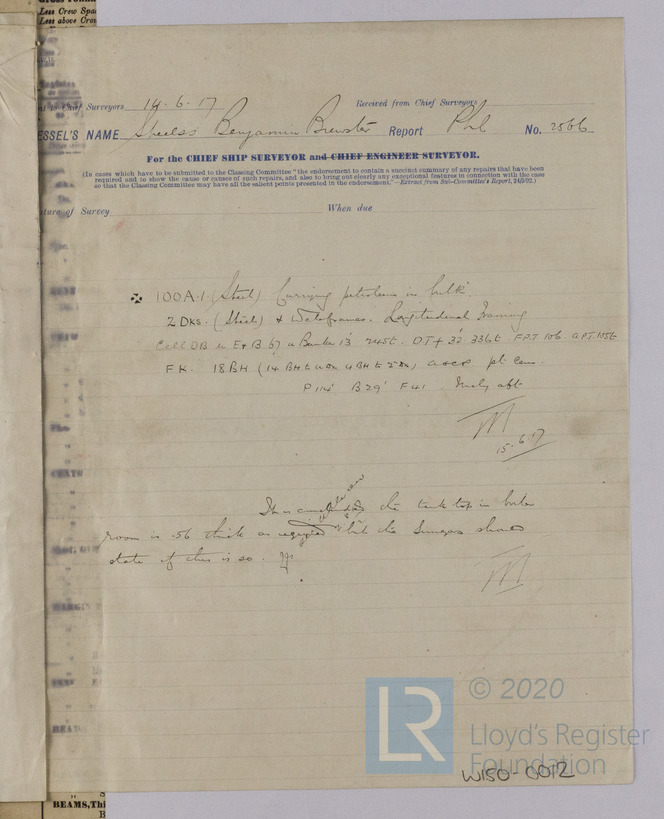 Less Crew Spa
Less above Crow
Chief Surveyors 14.6.17 Received from Chief Surveyors
ESSEL'S NAME Steel ss Benjamin Brewster Report Phl No. 2566
For the CHIEF SHIP SURVEYOR and CHIEF ENGINEER SURVEYOR.
(In cases which have to be submitted to the Classing Committee "the endorsement to contain a succinct summary of any repairs that have been
required and to show the cause or causes of such repairs, and also to bring out clearly any exceptional features in connection with the case
so that the Classing Committee may have all the salient points presented in the endorsement."—Extract from Sub-Committee's Report, 24/3/02.)
ture of Survey When due
✠ 100A.1. (Steel) Carrying petroleum in bulk
2 Dks. (Steel) & Webframes. Longitudinal Framing
Cell DB u E & B 67' u 13' 245t. DT f 32' 336t FPT 106. APT 105t
FK. 18 BH (14 BH to 4 BH to 2 Dk) pt Cem.
P 114' B 29' F 41' aft
15.6.17
the tank top in boiler
room is .56 thick as required but the Surveyor should
state if this is so.
© 2020
LR
Lloyd's Register
Foundation
W150-0012
BEAMS, Thi
B